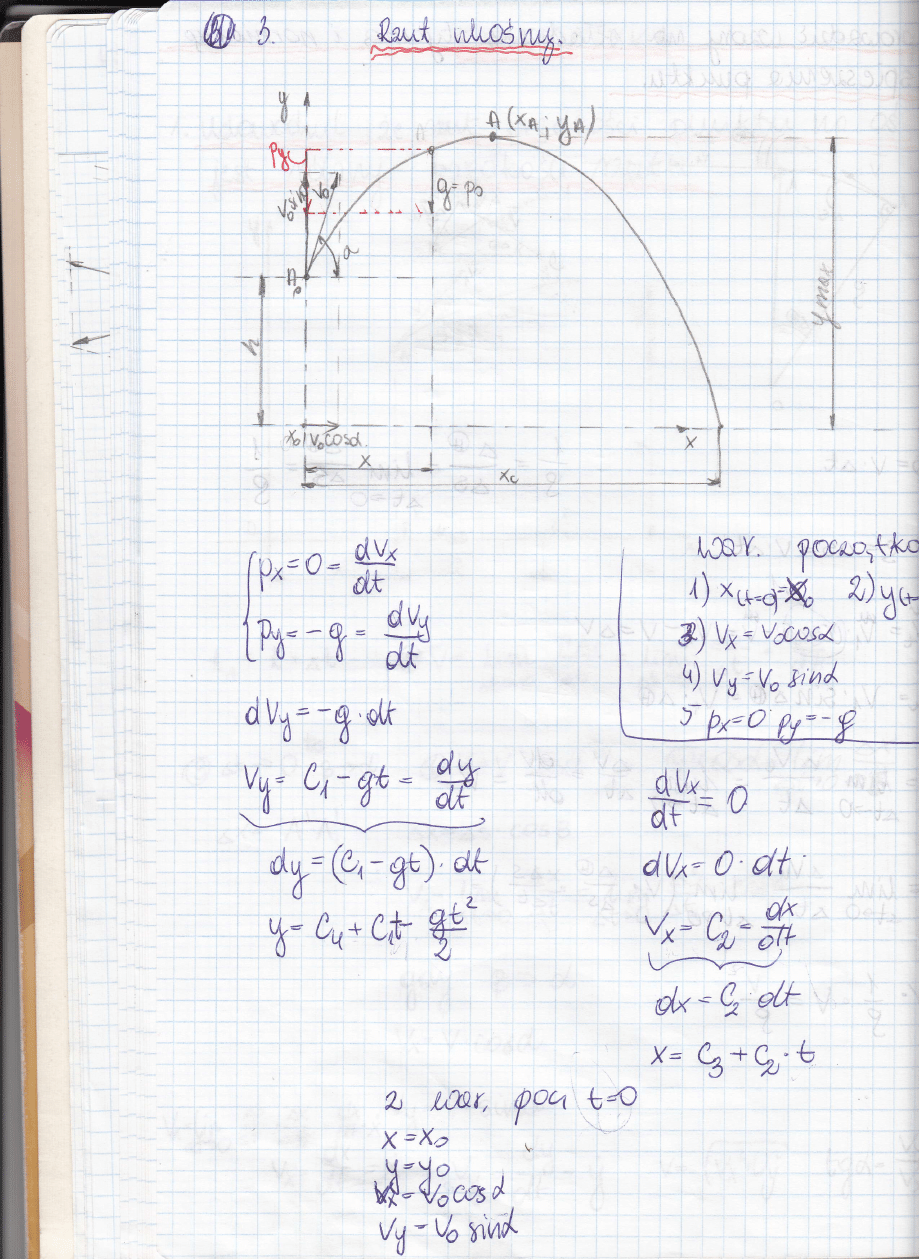 3. Rzut ukośny.
y
A(xA; yA)
py
v₀ sinα
v₀
g=p₀
α
A₀
h
ymax
x₀
v₀cosα
x
x
xc
px=0= dVx/dt
py=-g= dVy/dt
dVy=-g·dt
Vy= C₁-gt= dy/dt
dy=(C₁-gt)·dt
y= C₄+C₁t- gt²/2
war. początko
1) x(t=0)=x₀ 2) y(t=
3) Vx=V₀cosα
4) Vy=V₀ sinα
5 px=0 py=-g
dVx/dt=0
dVx=0·dt
Vx=C₂= dx/dt
dx=C₂ dt
x= C₃+C₂·t
2 war. pocz t=0
x=x₀
y=y₀
Vx=V₀cosα
Vy=V₀ sinα